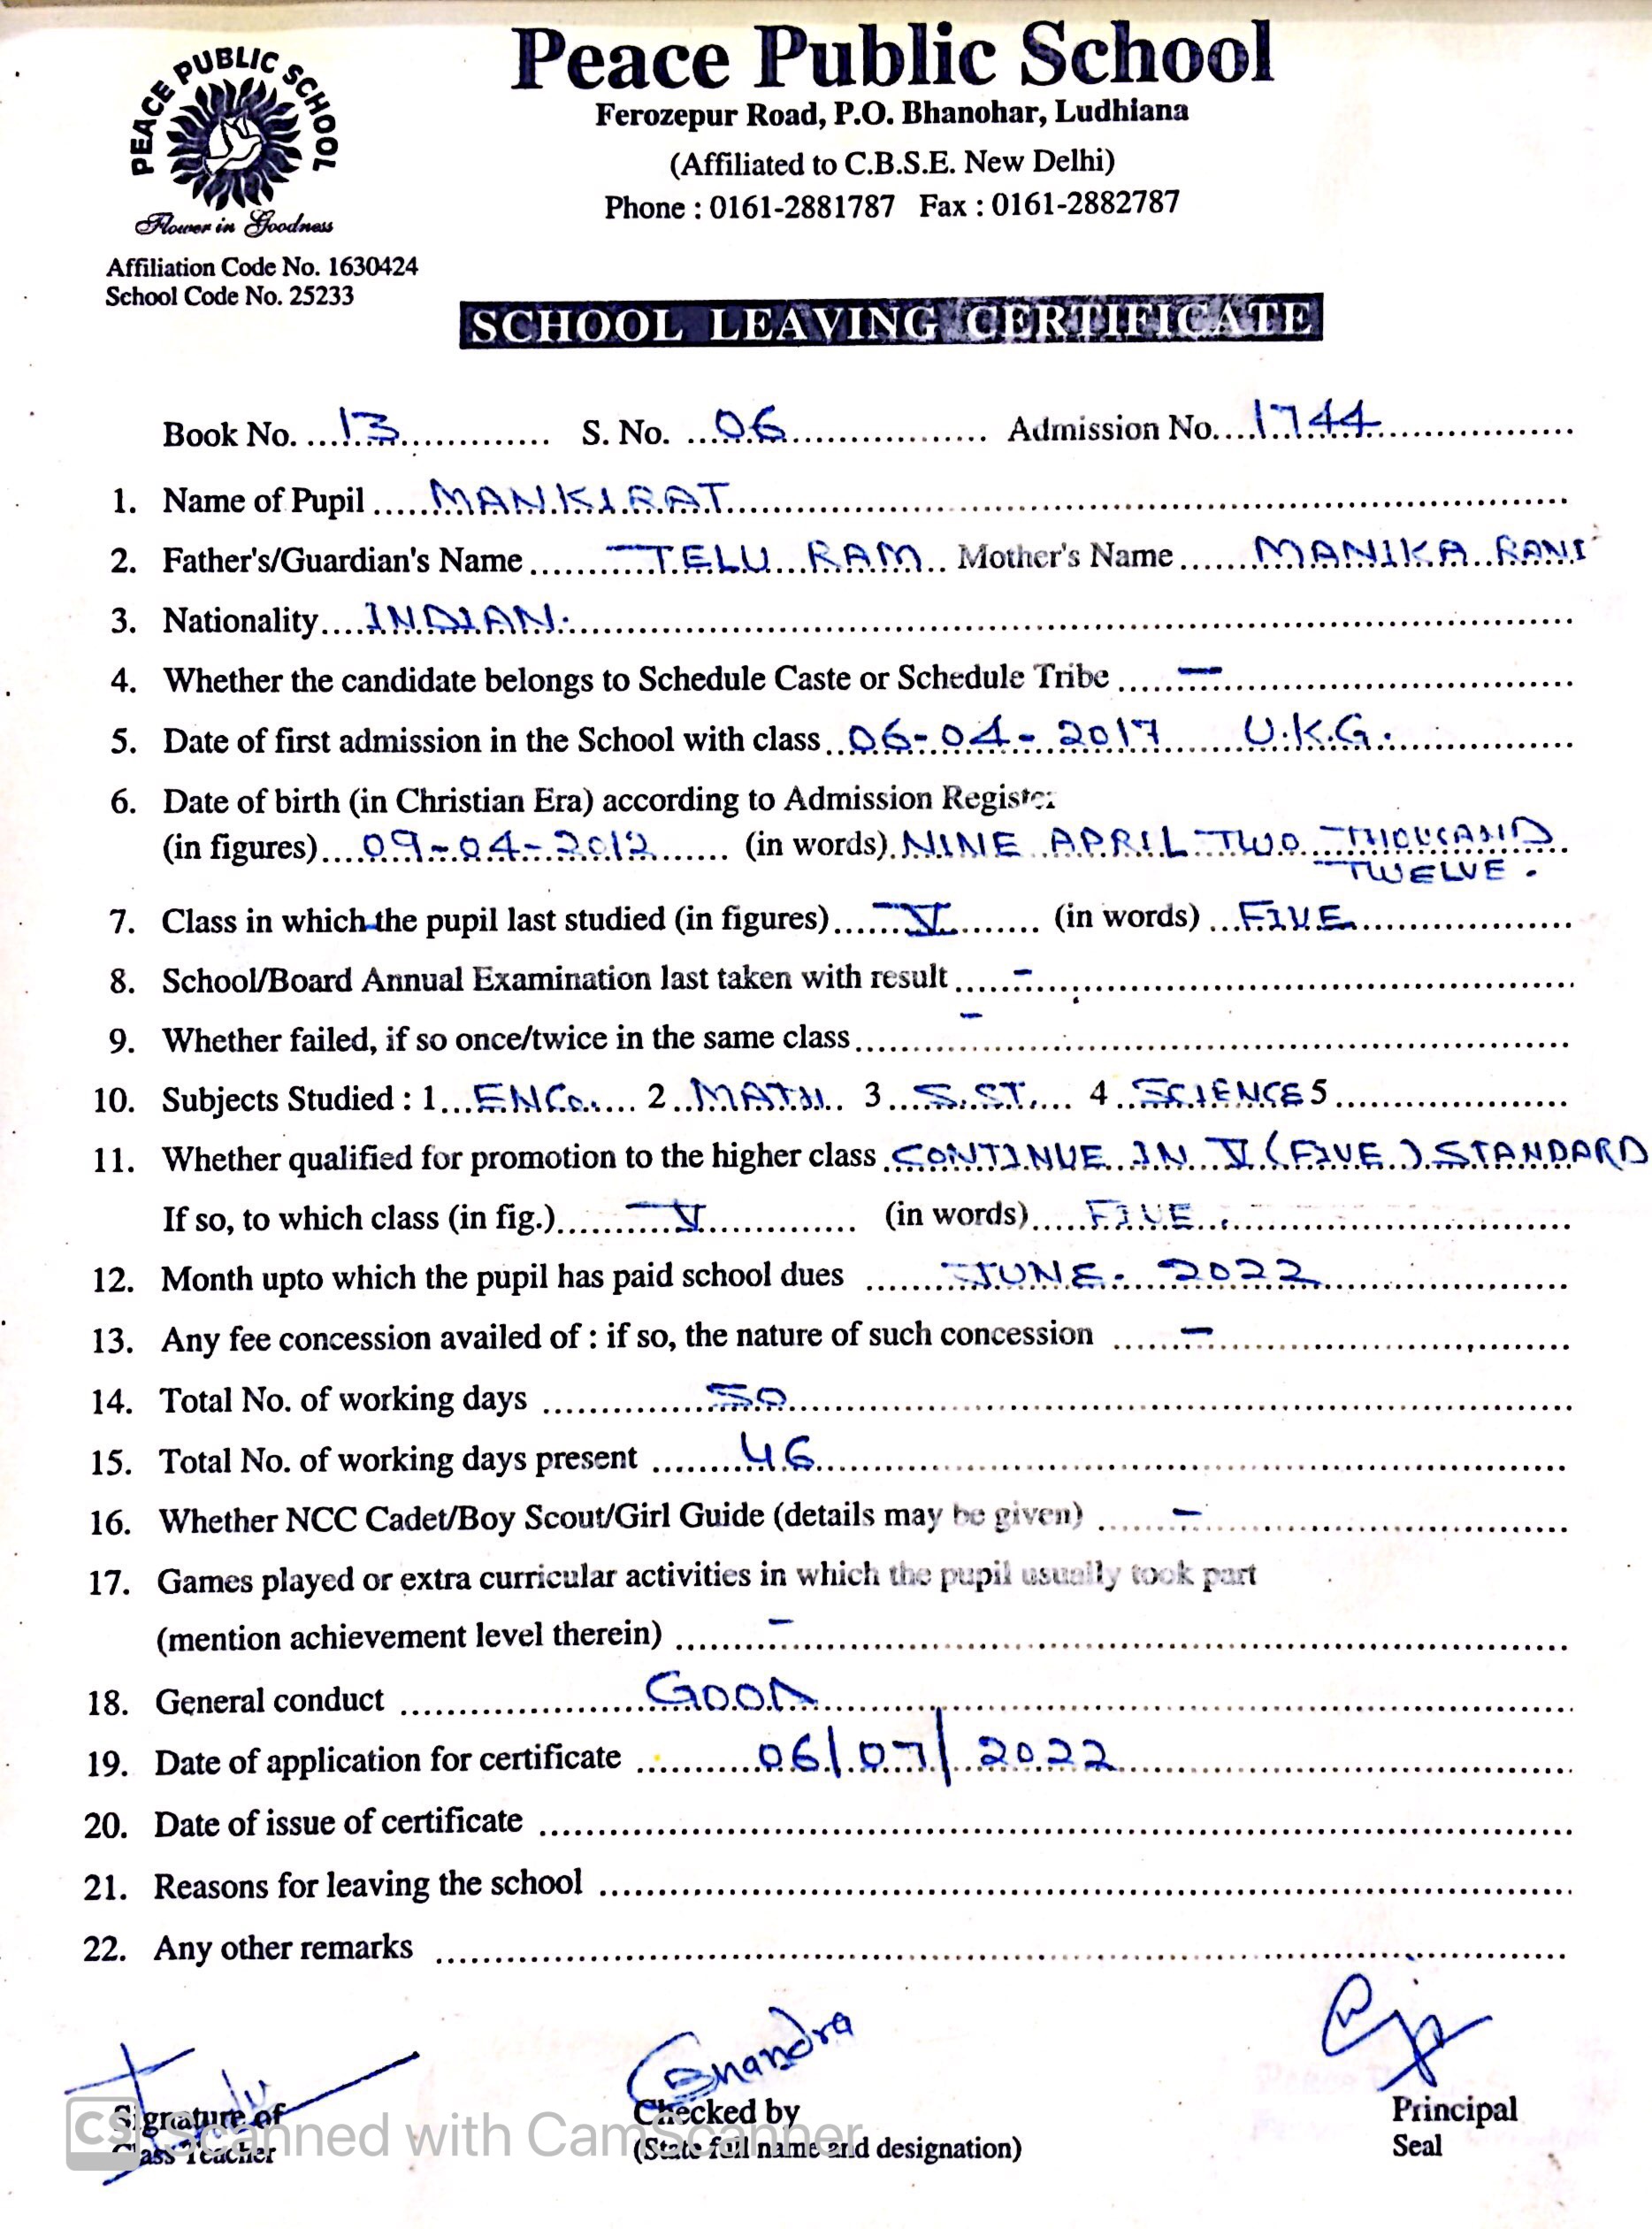 PEACE PUBLIC SCHOOL
Flower in Goodness
Affiliation Code No. 1630424
School Code No. 25233
Peace Public School
Ferozepur Road, P.O. Bhanohar, Ludhiana
(Affiliated to C.B.S.E. New Delhi)
Phone : 0161-2881787 Fax : 0161-2882787
SCHOOL LEAVING CERTIFICATE
Book No. 13 S. No. 06 Admission No. 1744
1. Name of Pupil MANKIRAT
2. Father's/Guardian's Name TELU RAM Mother's Name MANIKA RANI
3. Nationality INDIAN.
4. Whether the candidate belongs to Schedule Caste or Schedule Tribe –
5. Date of first admission in the School with class 06-04-2017 U.K.G.
6. Date of birth (in Christian Era) according to Admission Register
(in figures) 09-04-2012 (in words) NINE APRIL TWO THOUSAND
TWELVE.
7. Class in which the pupil last studied (in figures) V (in words) FIVE
8. School/Board Annual Examination last taken with result –
9. Whether failed, if so once/twice in the same class –
10. Subjects Studied : 1 ENG. 2 MATH 3 S.ST. 4 SCIENCE 5
11. Whether qualified for promotion to the higher class CONTINUE IN V (FIVE) STANDARD
If so, to which class (in fig.) V (in words) FIVE.
12. Month upto which the pupil has paid school dues JUNE. 2022
13. Any fee concession availed of : if so, the nature of such concession –
14. Total No. of working days 50
15. Total No. of working days present 46
16. Whether NCC Cadet/Boy Scout/Girl Guide (details may be given) –
17. Games played or extra curricular activities in which the pupil usually took part
(mention achievement level therein) –
18. General conduct GOOD
19. Date of application for certificate 06/07/2022
20. Date of issue of certificate
21. Reasons for leaving the school
22. Any other remarks
Chandra
Signature of Checked by Principal
Class Teacher (State full name and designation) Seal
CS Scanned with CamScanner